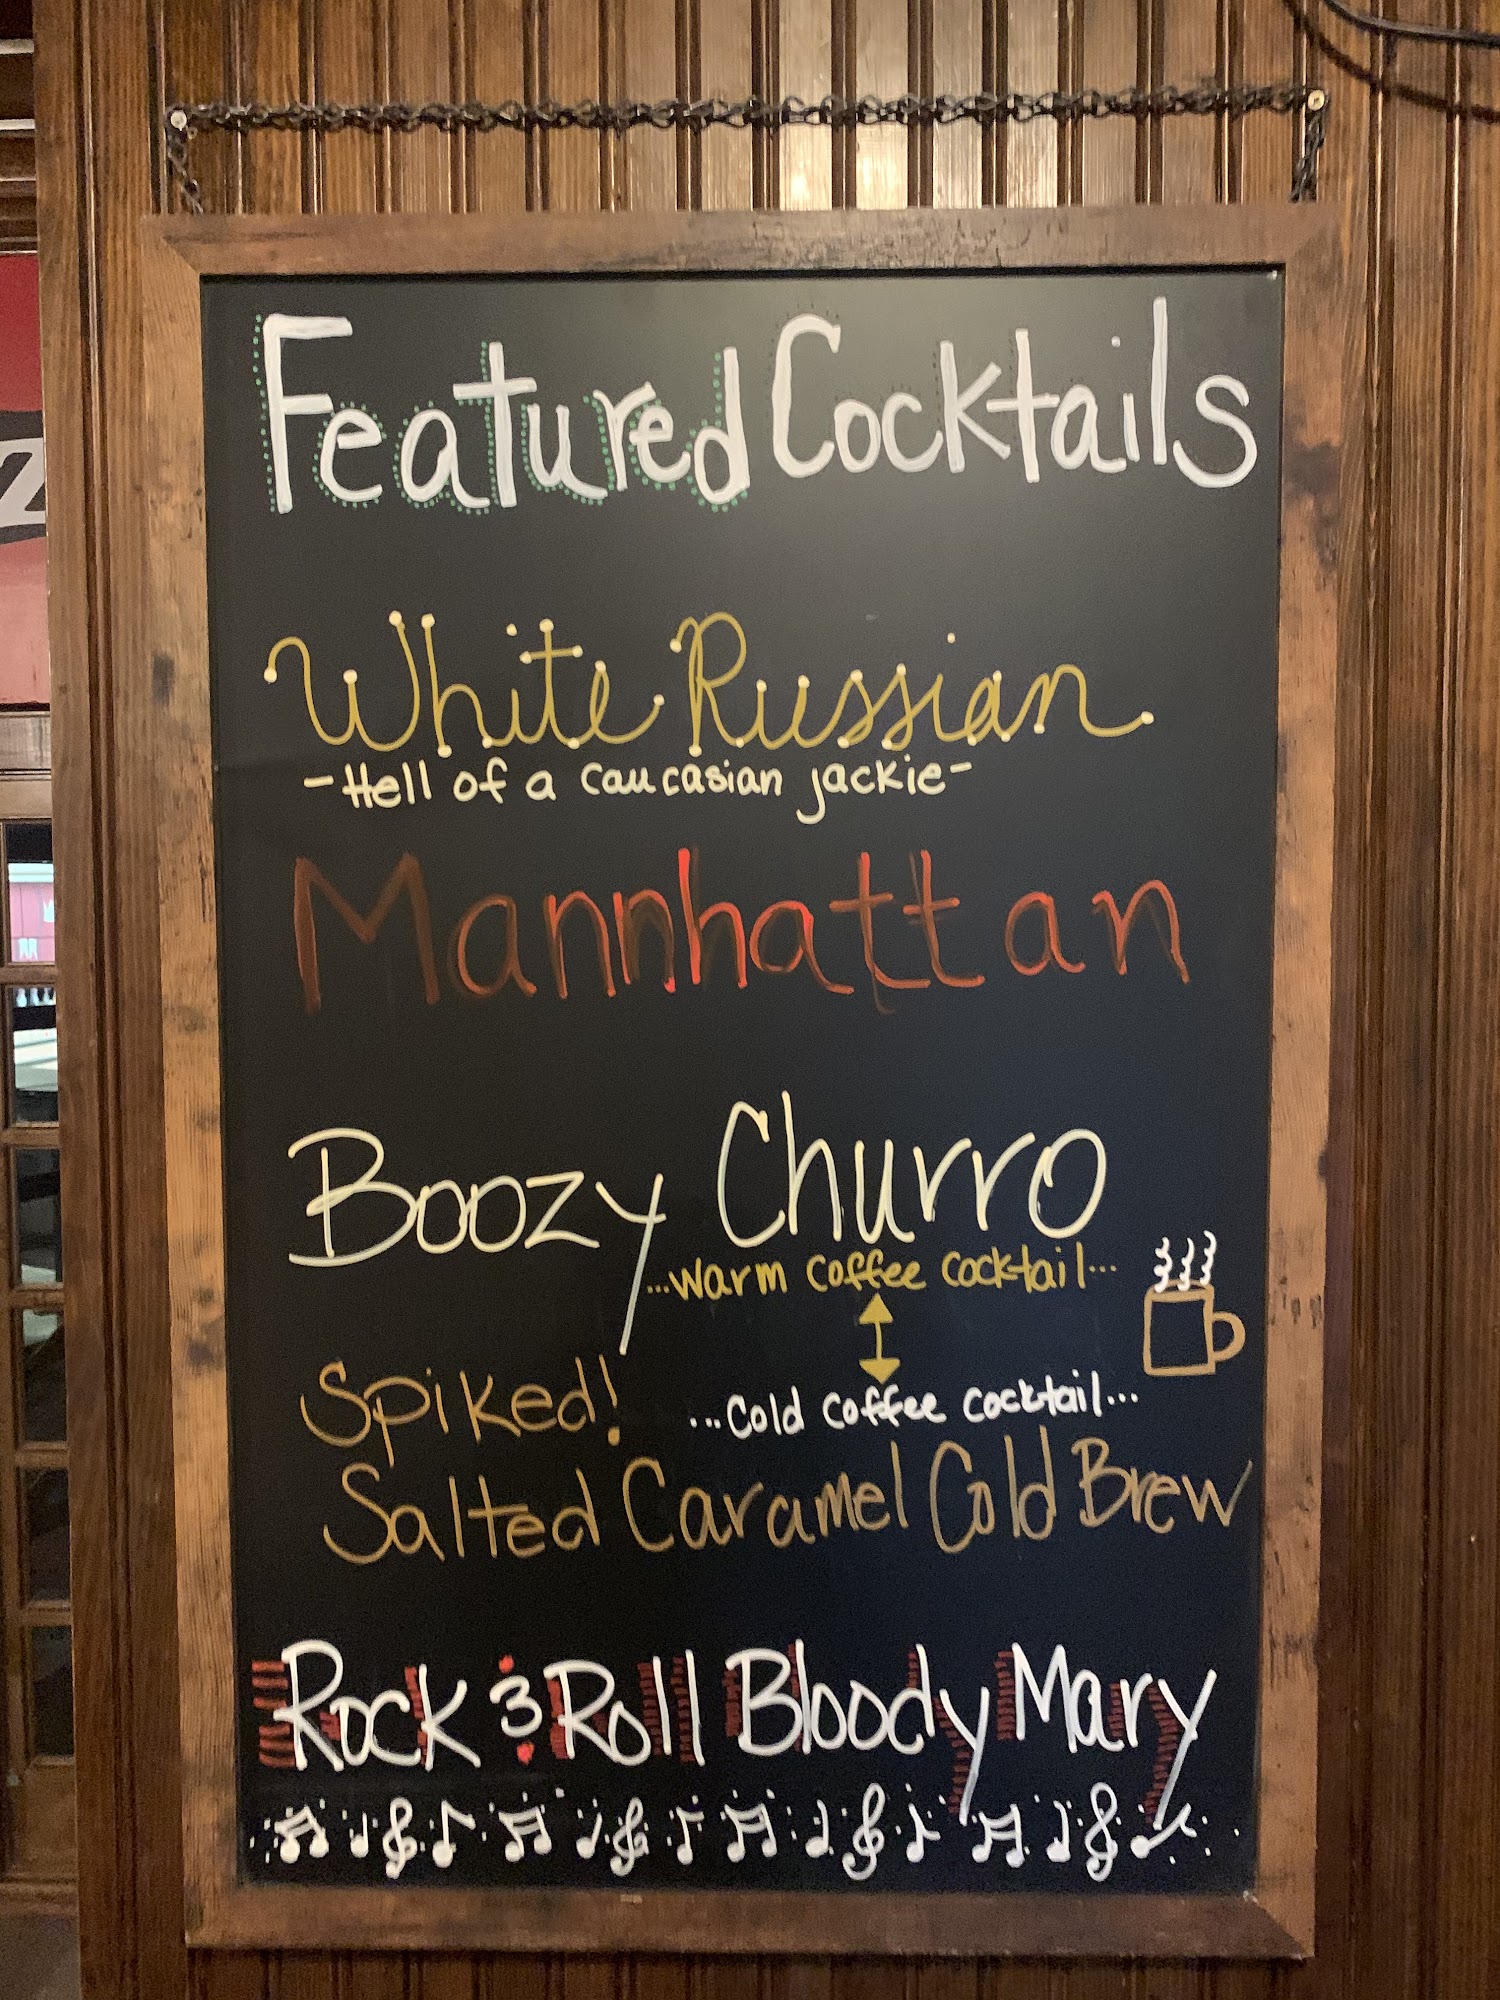 Featured Cocktails
White Russian
-Hell of a caucasian jackie-
Mannhattan
Boozy Churro
...warm coffee cocktail...
Spiked!
...cold coffee cocktail...
Salted Caramel Cold Brew
Rock & Roll Bloody Mary